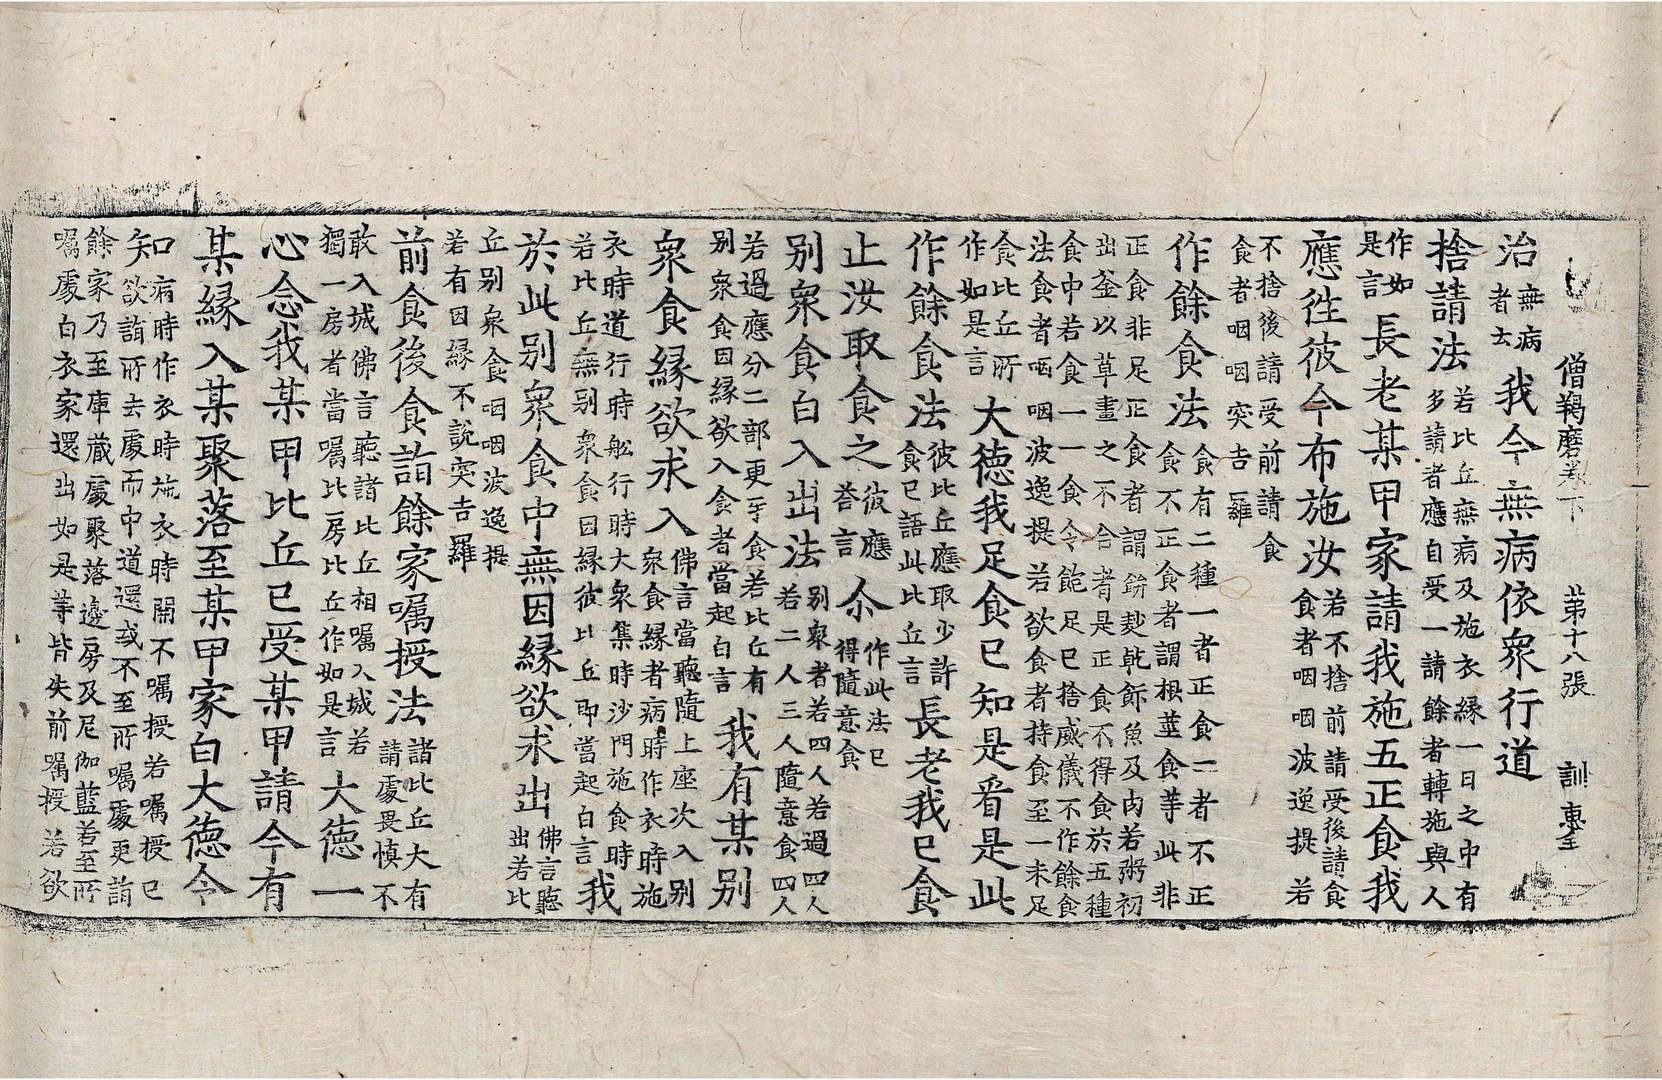 僧羯磨卷下 第十八張 訓
治無病者去我今無病依衆行道
捨請法若比丘無病及施衣緣一日之中有多請者應自受一請餘者轉施與人
作如是言長老某甲家請我施五正食我
應徃彼今布施汝若不捨前請受後請食食者咽咽波逸提若
不捨後請受前請食食者咽咽突吉羅
作餘食法食有二種一者正食二者不正食不正食者謂根莖食等此非
正食非足正食者謂餅麨乾飯魚及肉若粥初出釜以草畫之不合者是正食不得食於五種
食中若食一一食令飽足已捨威儀不作餘食法食者咽咽波逸提若欲食者持食至一未足
食比丘所作如是言大德我足食已知是看是此
作餘食法彼比丘應取少許食已語此比丘言長老我已食
止汝取食之彼應荅言尒作此法已得隨意食
別衆食白入出法別衆者若四人若過四人若二人三人隨意食四人
若過應分二部更互食若比丘有別衆食因緣欲入食者當起白言我有某別
衆食緣欲求入佛言當聽隨上座次入別衆食緣者病時作衣時施
衣時道行時舩行時大衆集時沙門施食時若比丘無別衆食因緣彼比丘即當起白言我
於此別衆食中無因緣欲求出佛言聽出若比
丘別衆食咽咽波逸提若有因緣不說突吉羅
前食後食詣餘家囑授法諸比丘大有請處畏慎不
敢入城佛言聽諸比丘相囑入城若獨一房者當囑比房比丘作如是言大德一
心念我某甲比丘已受某甲請今有
某緣入某聚落至某甲家白大德令
知病時作衣時施衣時開不囑授若囑授已欲詣所去處而中道還或不至所囑處更詣
餘家乃至庫藏處聚落邊房及尼伽藍若至所囑處白衣家還出如是等皆失前囑授若欲